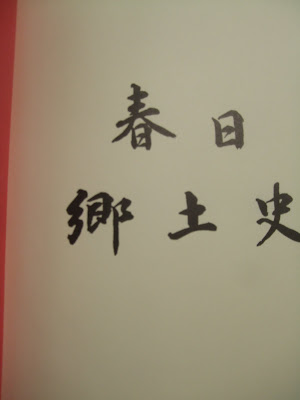 春日
郷土史